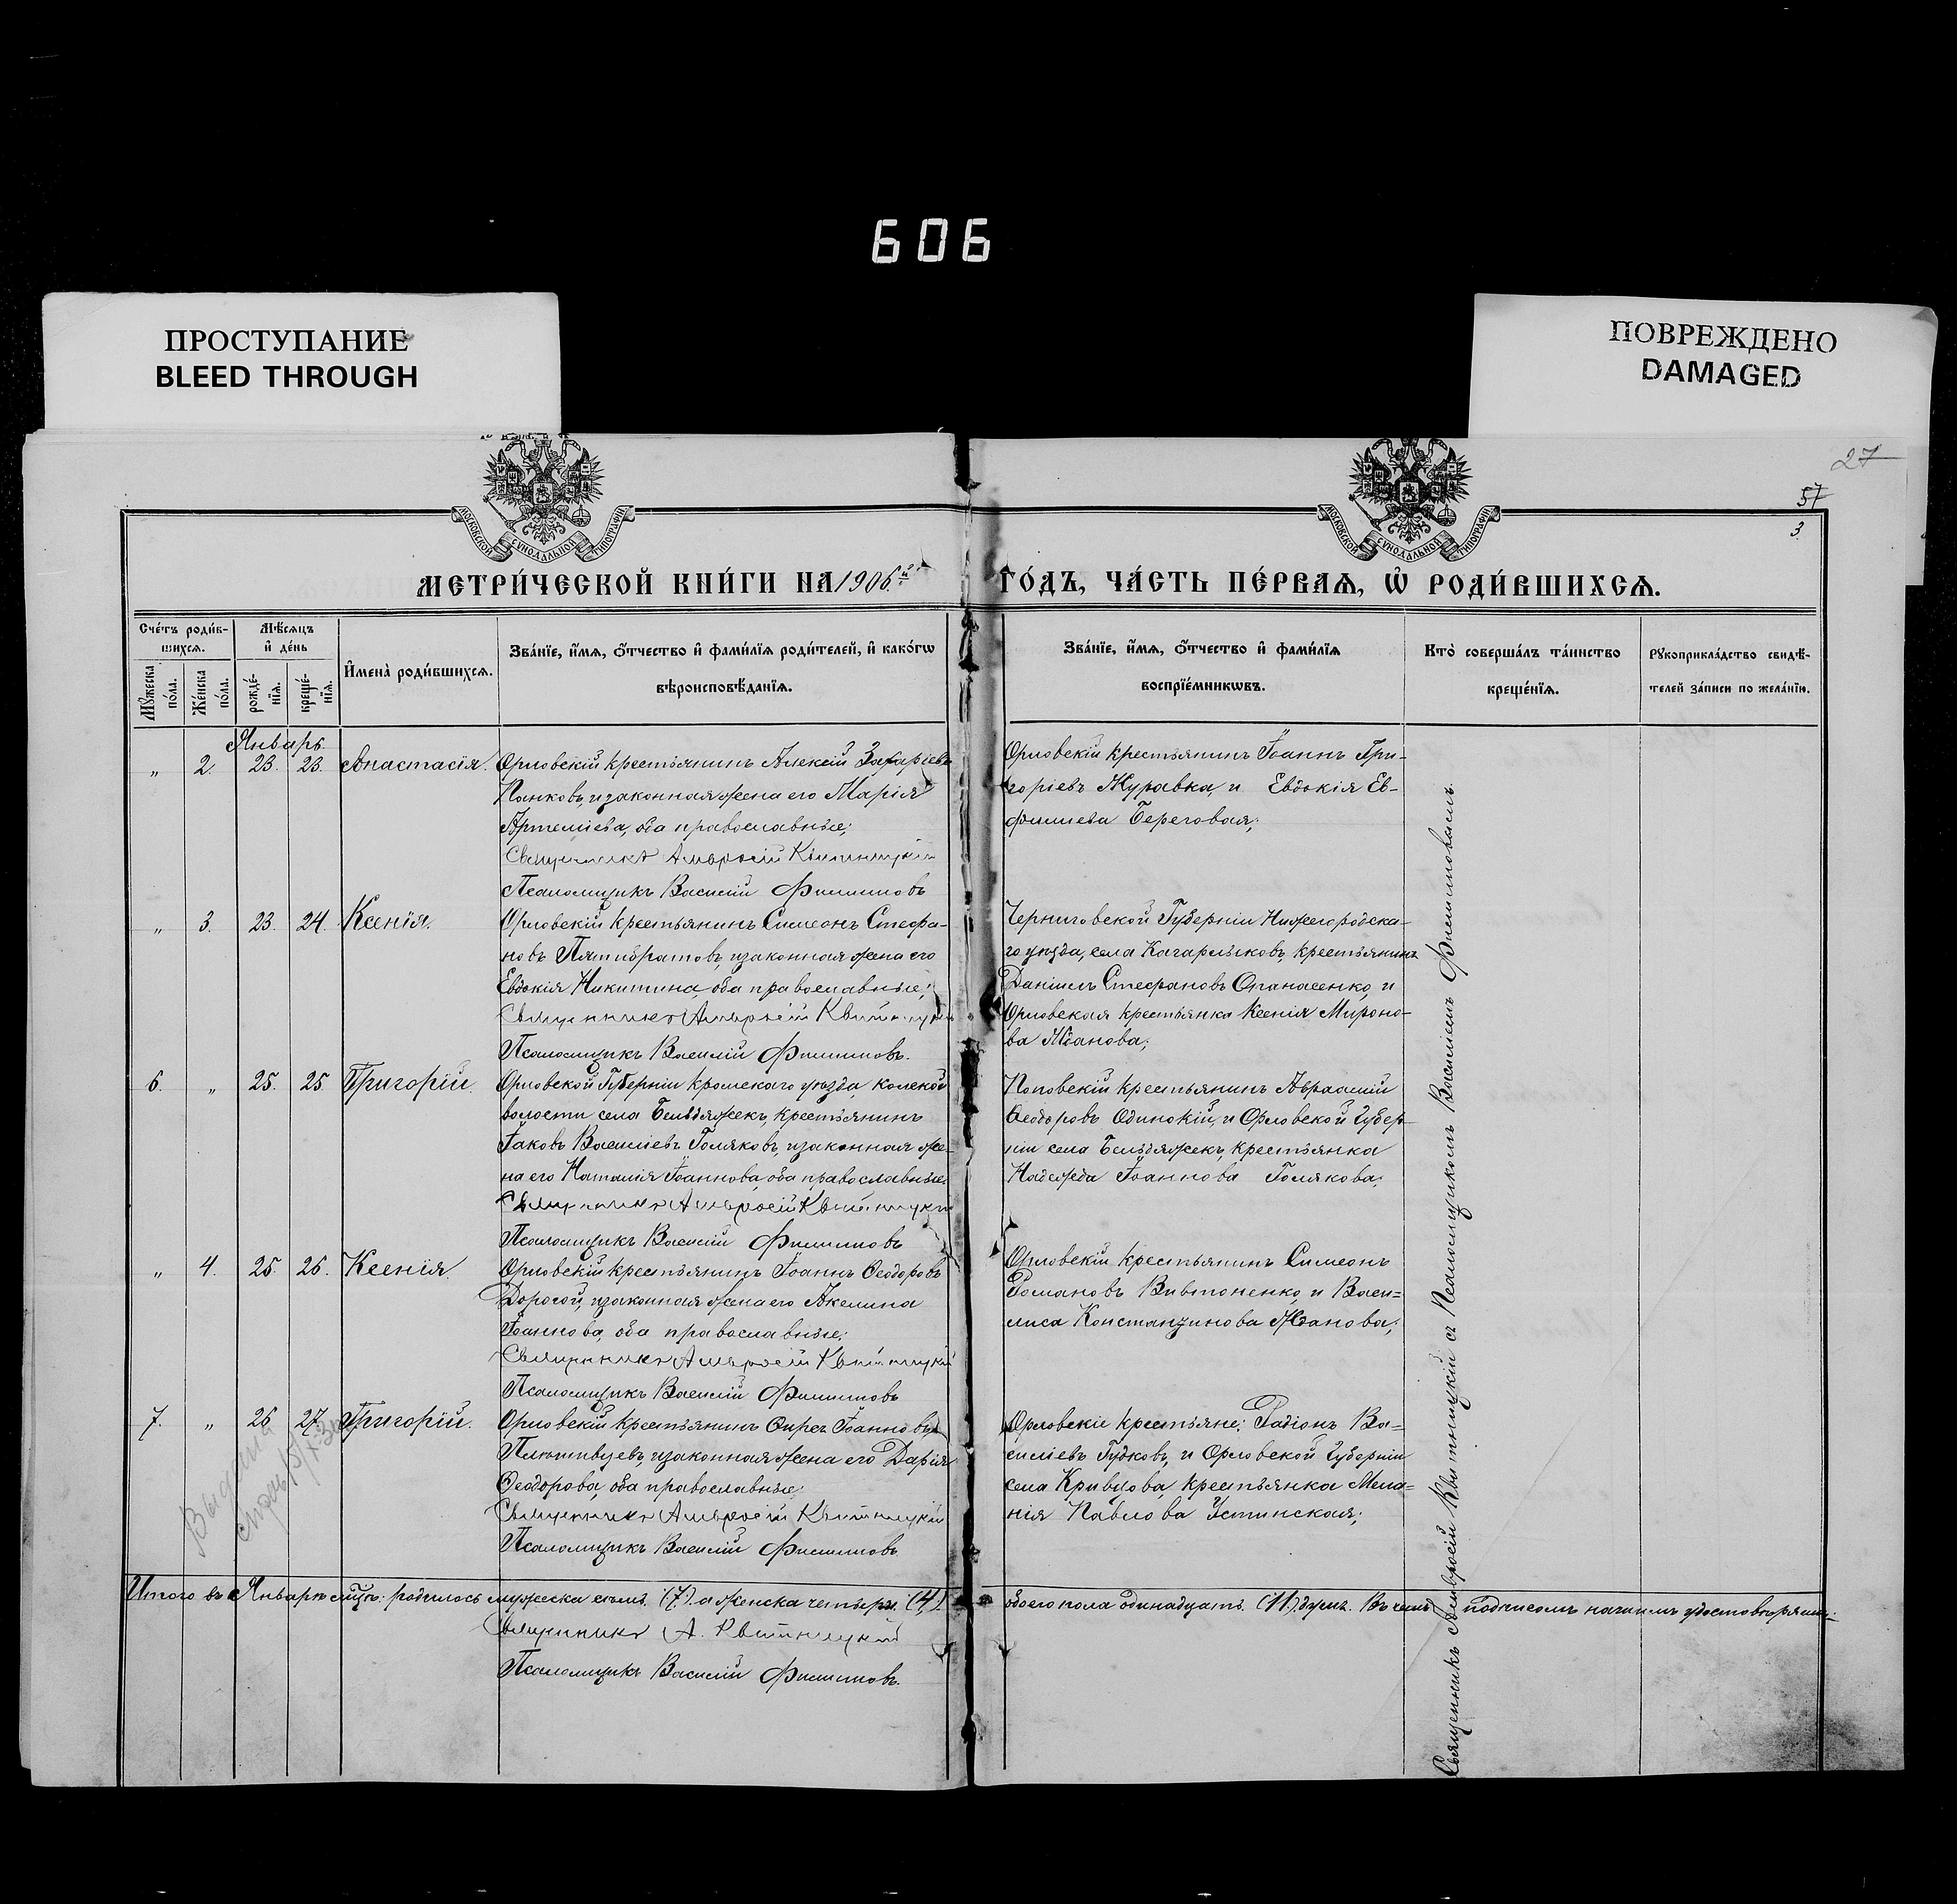 606
ПРОСТУПАНИЕ
BLEED THROUGH
ПОВРЕЖДЕНО
DAMAGED
27
57
3
МОСКОВСКОЙ СѴНОДАЛЬНОЙ ТИПОГРАФІИ
МОСКОВСКОЙ СѴНОДАЛЬНОЙ ТИПОГРАФІИ
МЕТРИ́ЧЕСКОЙ КНИ́ГИ НА 1906й
ГО́ДЪ, ЧА́СТЬ ПЕ́РВАѦ, Ѡ҆ РОДИ́ВШИХСѦ.
Сче́тъ роди́в-
шихсѧ.
Мѣ́сѧцъ
и҆ де́нь
Мꙋ́жеска по́ла.
Же́нска по́ла.
рожде́-
нїѧ.
креще́-
нїѧ.
И҆мена̀ роди́вшихсѧ.
Зва́нїе, и҆́мѧ, ѻ҆́тчество и҆ фамѵ́лїѧ роди́телей, и҆ како́гѡ
вѣроисповѣ́данїѧ.
Зва́нїе, и҆́мѧ, ѻ҆́тчество и҆ фамѵ́лїѧ
воспрїе́мникѡвъ.
Кто̀ соверша́лъ та́инство
креще́нїѧ.
Рꙋкоприкла́дство свидѣ́-
телей за́писи по жела́нїю.
Январь.
„ 2. 23. 23. Анастасія. Орловскій крестьянинъ Алексій Захаріевъ
Панковъ, и законная жена его Марія
Артеміева, оба православные;
Священникъ Амвросій Квитницкій
Псаломщикъ Василій Филипповъ
Орловскій крестьянинъ Іоаннъ Гри-
горіевъ Журавка, и Евдокія Ев-
фиміева Береговая;
„ 3. 23. 24. Ксенія. Орловскій крестьянинъ Симеонъ Стефа-
новъ Пятибратовъ, и законная жена его
Евдокія Никитина, оба православные;
Священникъ Амвросій Квитницкій
Псаломщикъ Василій Филипповъ.
Черниговской Губерніи
го уѣзда, села Кагарлыковъ, крестьянинъ
Даніилъ Стефановъ Опанасенко, и
Орловская крестьянка Ксенія Мироно-
ва Жданова;
6. „ 25. 25 Григорій. Орловской Губерніи Кромскаго уѣзда,
волости села Бельдяжекъ, крестьянинъ
Іаковъ Василіевъ Голяковъ, и законная же-
на его Наталія Іоаннова, оба православные.
Священникъ Амвросій Квитницкій
Псаломщикъ Василій Филипповъ
Поповскій крестьянинъ Авраамій
Ѳеодоровъ Одинокій, и Орловской Губер-
ніи села Бельдяжекъ, крестьянка
Надежда Іоаннова Голякова;
„ 4. 25. 26. Ксенія. Орловскій крестьянинъ Іоаннъ Ѳеодоровъ
Дорогой, и законная жена его Акелина
Іоаннова, оба православные;
Священникъ Амвросій Квитницкій
Псаломщикъ Василій Филипповъ
Орловскій крестьянинъ Симеонъ
Романовъ Вивтоненко, и Васи=
лиса Константинова Жданова;
7. „ 26 27 Григорій. Орловскій крестьянинъ Іоанновъ
и законная жена его Дарія
Ѳеодорова, оба православные;
Священникъ Амвросій Квитницкій
Псаломщикъ Василій Филипповъ
Орловскіе крестьяне: Радіонъ Ва=
силіевъ Гудковъ, и Орловской Губерніи
села Кривцова, крестьянка Мела=
нія Павлова Устинская;
Итого въ Январѣ мцѣ: родилось мужеска семь. (7). а женска четыри. (4).
обоего пола одинадцать. (11.) душъ. Въ чемъ подписомъ нашимъ удостовѣряемъ:
Священникъ А. Квитницкій
Псаломщикъ Василій Филипповъ.
Священникъ Амвросій Квитницкій съ Псаломщикомъ Василіемъ Филипповымъ.